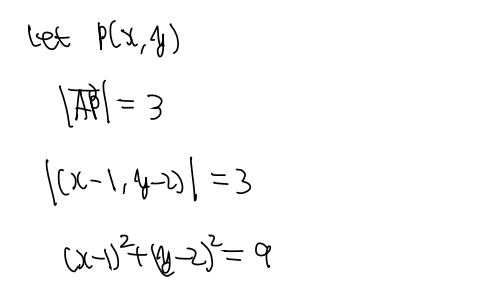 let P(x, y)
|AP⃗| = 3
|(x-1, y-2)| = 3
(x-1)²+(y-2)² = 9